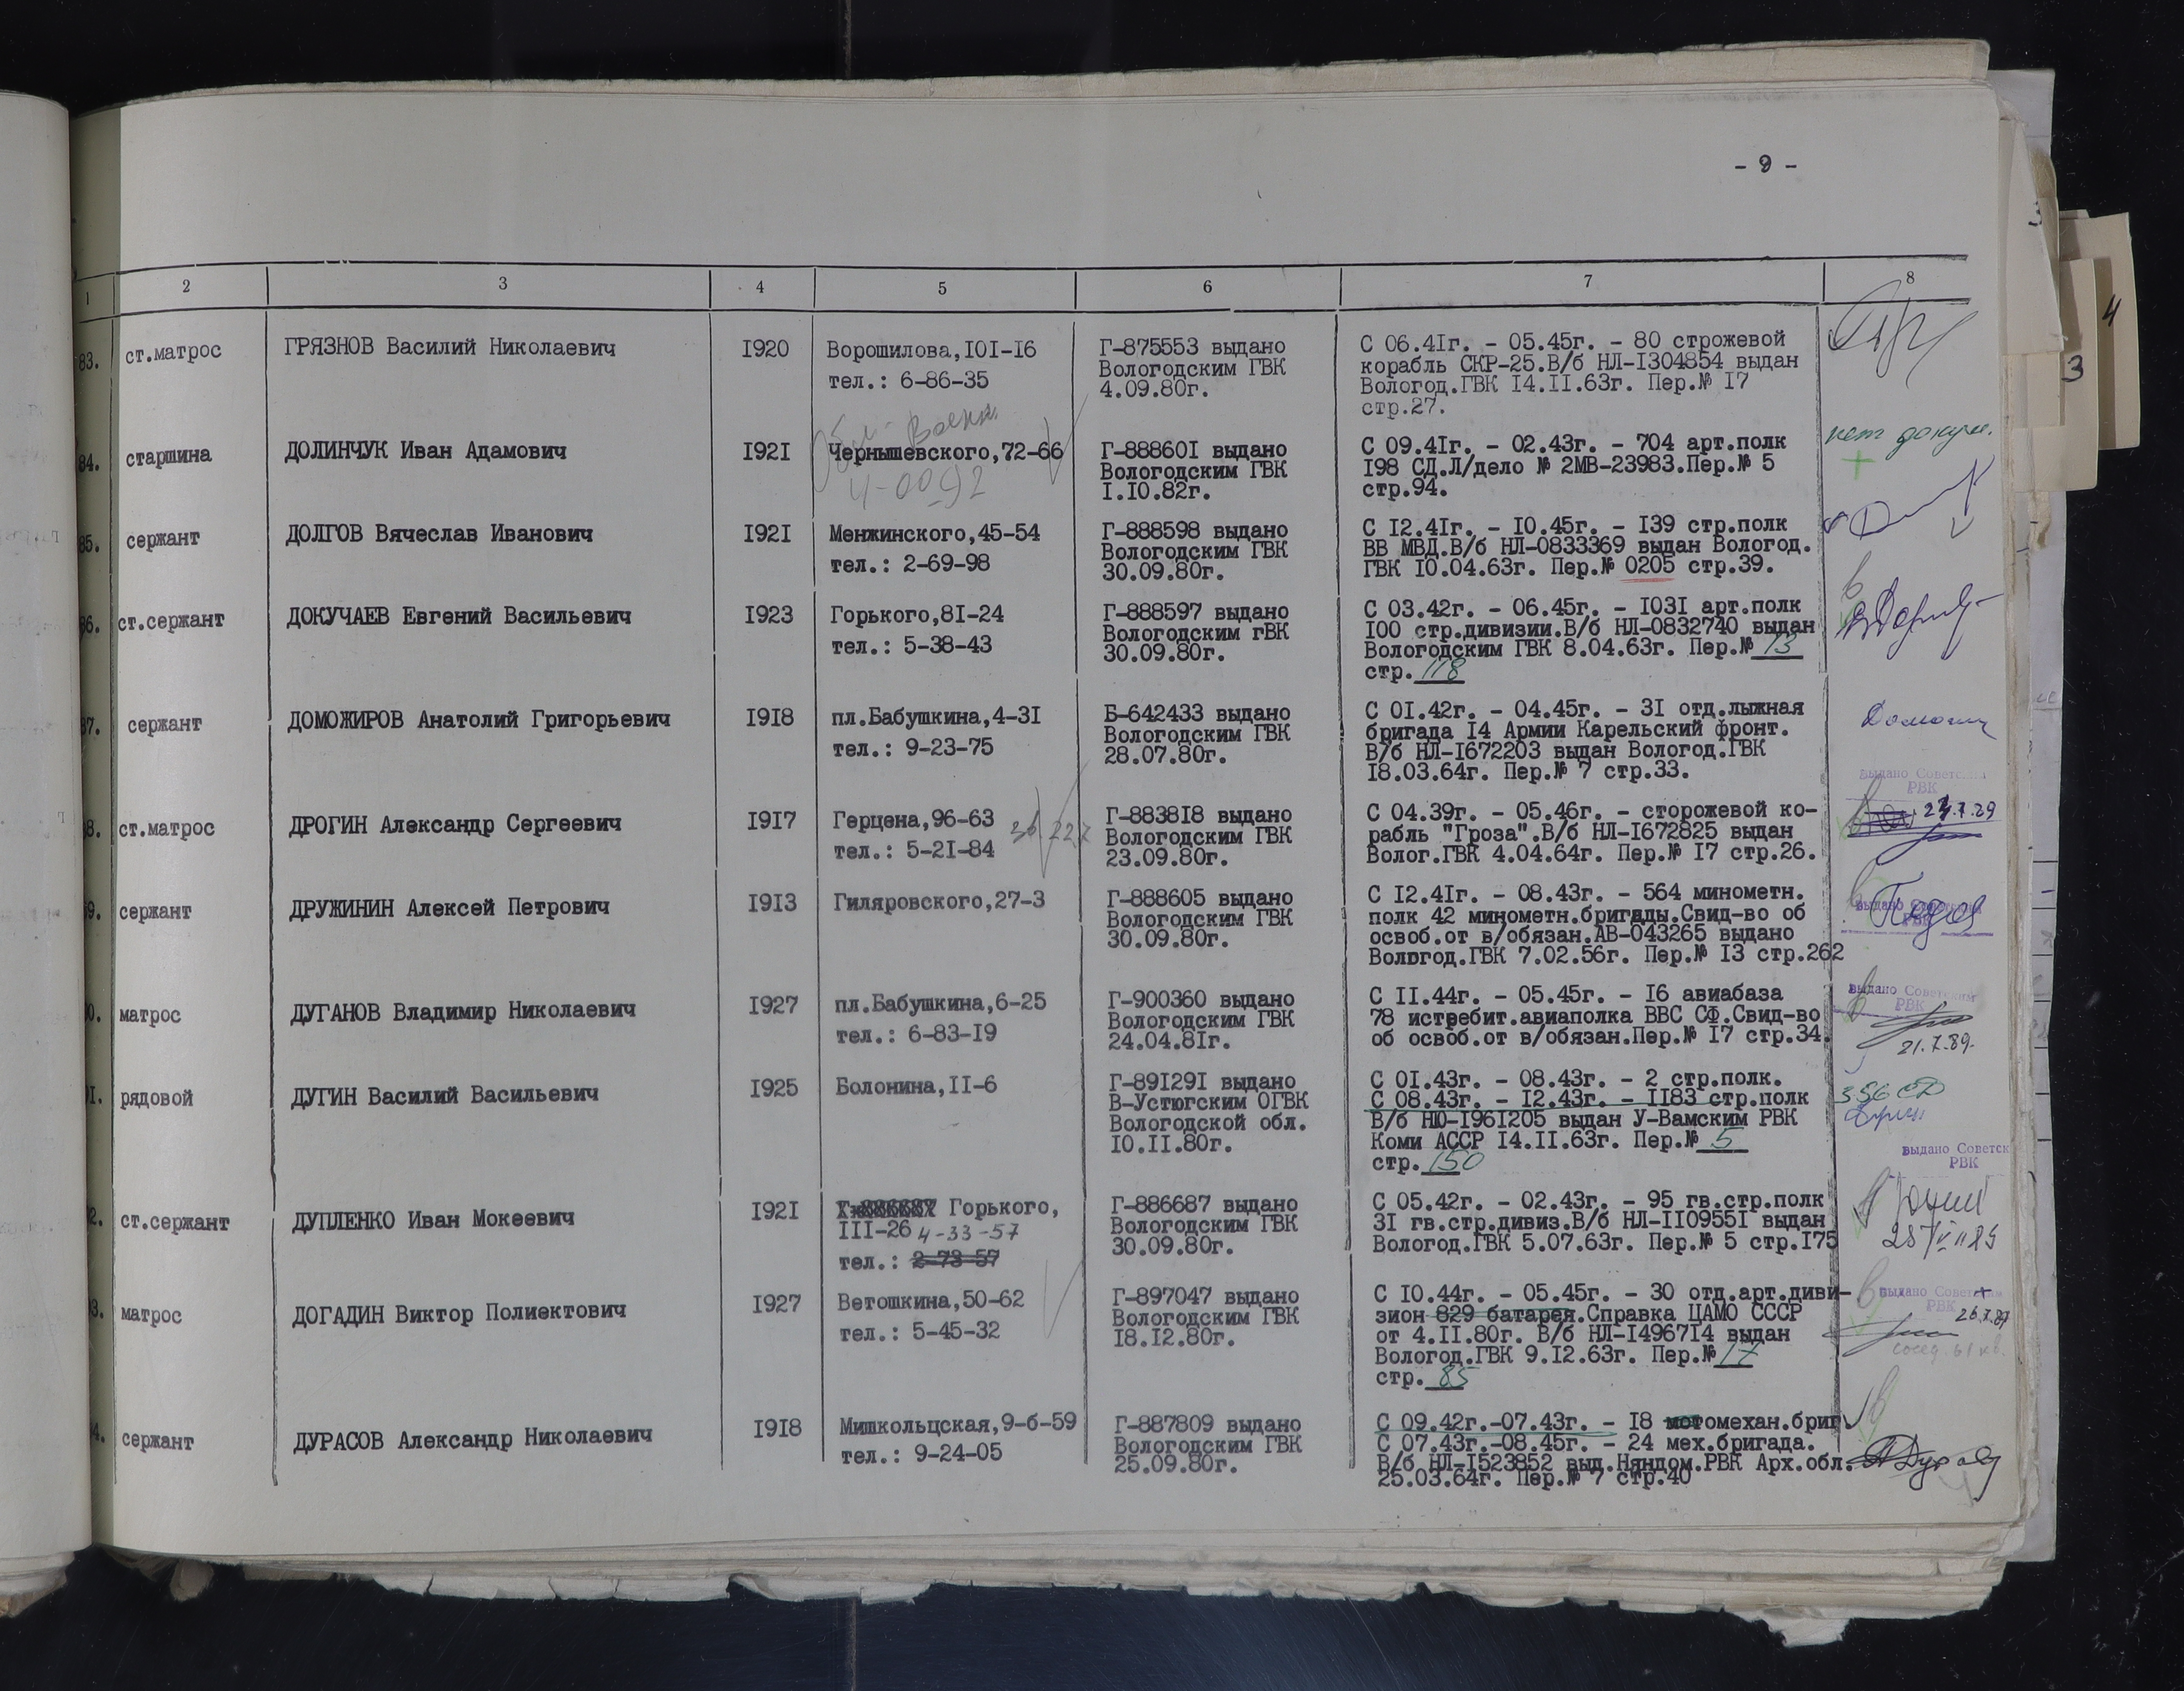 - 9 -
1 2 3 4 5 6 7 8
83. ст.матрос ГРЯЗНОВ Василий Николаевич I920 Ворошилова,I0I-I6 Г-875553 выдано С 06.4Iг. - 05.45г. - 80 строжевой
тел.: 6-86-35 Вологодским ГВК корабль СКР-25.В/б НЛ-I304854 выдан
4.09.80г. Вологод.ГВК I4.II.63г. Пер.№ I7
стр.27.
84. старшина ДОЛИНЧУК Иван Адамович I92I Чернышевского,72-66 Г-88860I выдано С 09.4Iг. - 02.43г. - 704 арт.полк нет докум.
4-00-92 Вологодским ГВК I98 СД.Л/дело № 2МВ-23983.Пер.№ 5 +
I.I0.82г. стр.94.
85. сержант ДОЛГОВ Вячеслав Иванович I92I Менжинского,45-54 Г-888598 выдано С I2.4Iг. - I0.45г. - I39 стр.полк
тел.: 2-69-98 Вологодским ГВК ВВ МВД.В/б НЛ-0833369 выдан Вологод.
30.09.80г. ГВК I0.04.63г. Пер.№ 0205 стр.39.
86. ст.сержант ДОКУЧАЕВ Евгений Васильевич I923 Горького,8I-24 Г-888597 выдано С 03.42г. - 06.45г. - I03I арт.полк
тел.: 5-38-43 Вологодским гВК I00 стр.дивизии.В/б НЛ-0832740 выдан
30.09.80г. Вологодским ГВК 8.04.63г. Пер.№ 13
стр. 118
87. сержант ДОМОЖИРОВ Анатолий Григорьевич I9I8 пл.Бабушкина,4-3I Б-642433 выдано С 0I.42г. - 04.45г. - 3I отд.лыжная
тел.: 9-23-75 Вологодским ГВК бригада I4 Армии Карельский фронт.
28.07.80г. В/б НЛ-I672203 выдан Вологод.ГВК
I8.03.64г. Пер.№ 7 стр.33.
выдано Советским
РВК
88. ст.матрос ДРОГИН Александр Сергеевич I9I7 Герцена,96-63 Г-8838I8 выдано С 04.39г. - 05.46г. - сторожевой ко-
тел.: 5-2I-84 Вологодским ГВК рабль "Гроза".В/б НЛ-I672825 выдан
23.09.80г. Волог.ГВК 4.04.64г. Пер.№ I7 стр.26.
89. сержант ДРУЖИНИН Алексей Петрович I9I3 Гиляровского,27-3 Г-888605 выдано С I2.4Iг. - 08.43г. - 564 минометн.
Вологодским ГВК полк 42 минометн.бригады.Свид-во об выдано Советским
30.09.80г. освоб.от в/обязан.АВ-043265 выдано РВК
Вологод.ГВК 7.02.56г. Пер.№ I3 стр.262
90. матрос ДУГАНОВ Владимир Николаевич I927 пл.Бабушкина,6-25 Г-900360 выдано С II.44г. - 05.45г. - I6 авиабаза выдано Советским
тел.: 6-83-I9 Вологодским ГВК 78 истребит.авиаполка ВВС СФ.Свид-во РВК
24.04.8Iг. об освоб.от в/обязан.Пер.№ I7 стр.34. 21.7.89.
91. рядовой ДУГИН Василий Васильевич I925 Болонина,II-6 Г-89I29I выдано С 0I.43г. - 08.43г. - 2 стр.полк. 356 СД
В-Устюгским ОГВК С 08.43г. - I2.43г. - II83 стр.полк
Вологодской обл. В/б НЮ-I96I205 выдан У-Вамским РВК
I0.II.80г. Коми АССР I4.II.63г. Пер.№ 5
стр. 150
выдано Советск
РВК
92. ст.сержант ДУПЛЕНКО Иван Мокеевич I92I Г-886687 Горького, Г-886687 выдано С 05.42г. - 02.43г. - 95 гв.стр.полк
III-26 4-33-57 Вологодским ГВК 3I гв.стр.дивиз.В/б НЛ-II0955I выдан
тел.: 2-73-57 30.09.80г. Вологод.ГВК 5.07.63г. Пер.№ 5 стр.I75
93. матрос ДОГАДИН Виктор Полиектович I927 Ветошкина,50-62 Г-897047 выдано С I0.44г. - 05.45г. - 30 отд.арт.диви- выдано Советским
тел.: 5-45-32 Вологодским ГВК зион 829 батарея.Справка ЦАМО СССР РВК
I8.I2.80г. от 4.II.80г. В/б НЛ-I4967I4 выдан
Вологод.ГВК 9.I2.63г. Пер.№ 17
стр. 85
94. сержант ДУРАСОВ Александр Николаевич I9I8 Мишкольцская,9-б-59 Г-887809 выдано С 09.42г.-07.43г. - I8 мотомехан.бриг
тел.: 9-24-05 Вологодским ГВК С 07.43г.-08.45г. - 24 мех.бригада.
25.09.80г. В/б НЛ-I523852 выд.Няндом.РВК Арх.обл.
25.03.64г. Пер.№ 7 стр.40
3
4